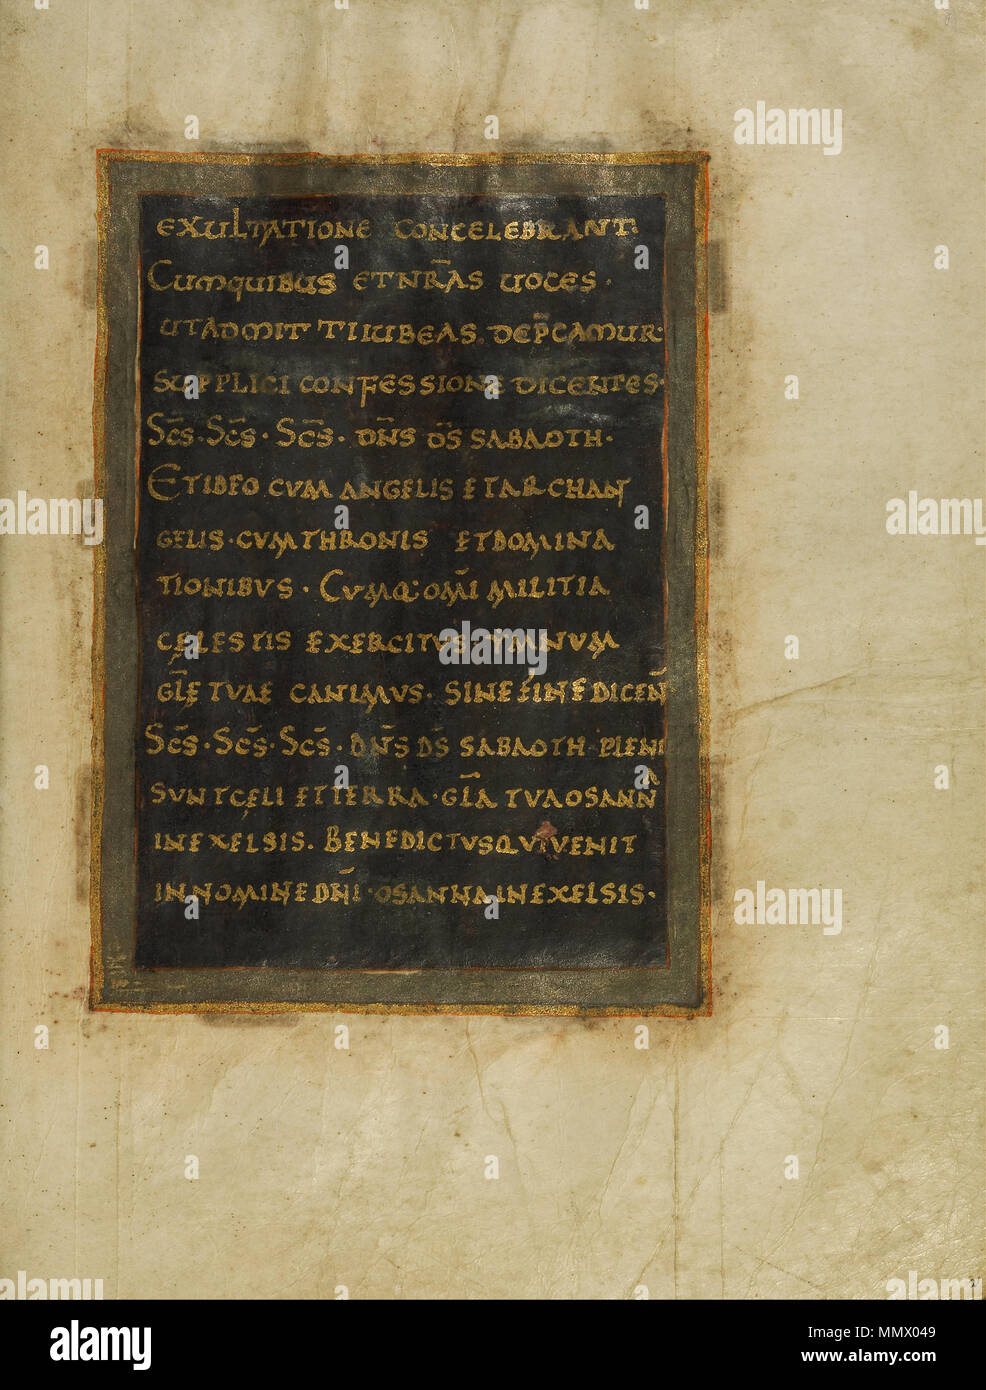 EXULTATIONE CONCELEBRANT.
CUMQUIBUS ETNR̄AS UOCES ·
UTADMITTIIUBEAS. DEP̄CAMUR·
SUPPLICI CONFESSIONE DICENTES·
SC̄S·SC̄S· SC̄S· DN̄S DS̄ SABAOTH·
ETIDEO CVM ANGELIS ETARCHAN
GELIS·CVMTHRONIS ETDOMINA
TIONIBVS · CVMQ: OM̄I MILITIA
CĘLESTIS EXERCITVS· YMNVM
GL̄Ę TVAE CANIMVS· SINE FINE DICEN̄·
SC̄S·SC̄S·SC̄S· DN̄S DS̄ SABAOTH·PLENI
SVNTCĘLI ETTERRA·GL̄A TVAOSANN̄
INEXELSIS. BENEDICTVSQVIVENIT
INNOMINE DN̄I·OSANNAINEXELSIS·
alamy
a
alamy
Image ID: MMX049
www.alamy.com